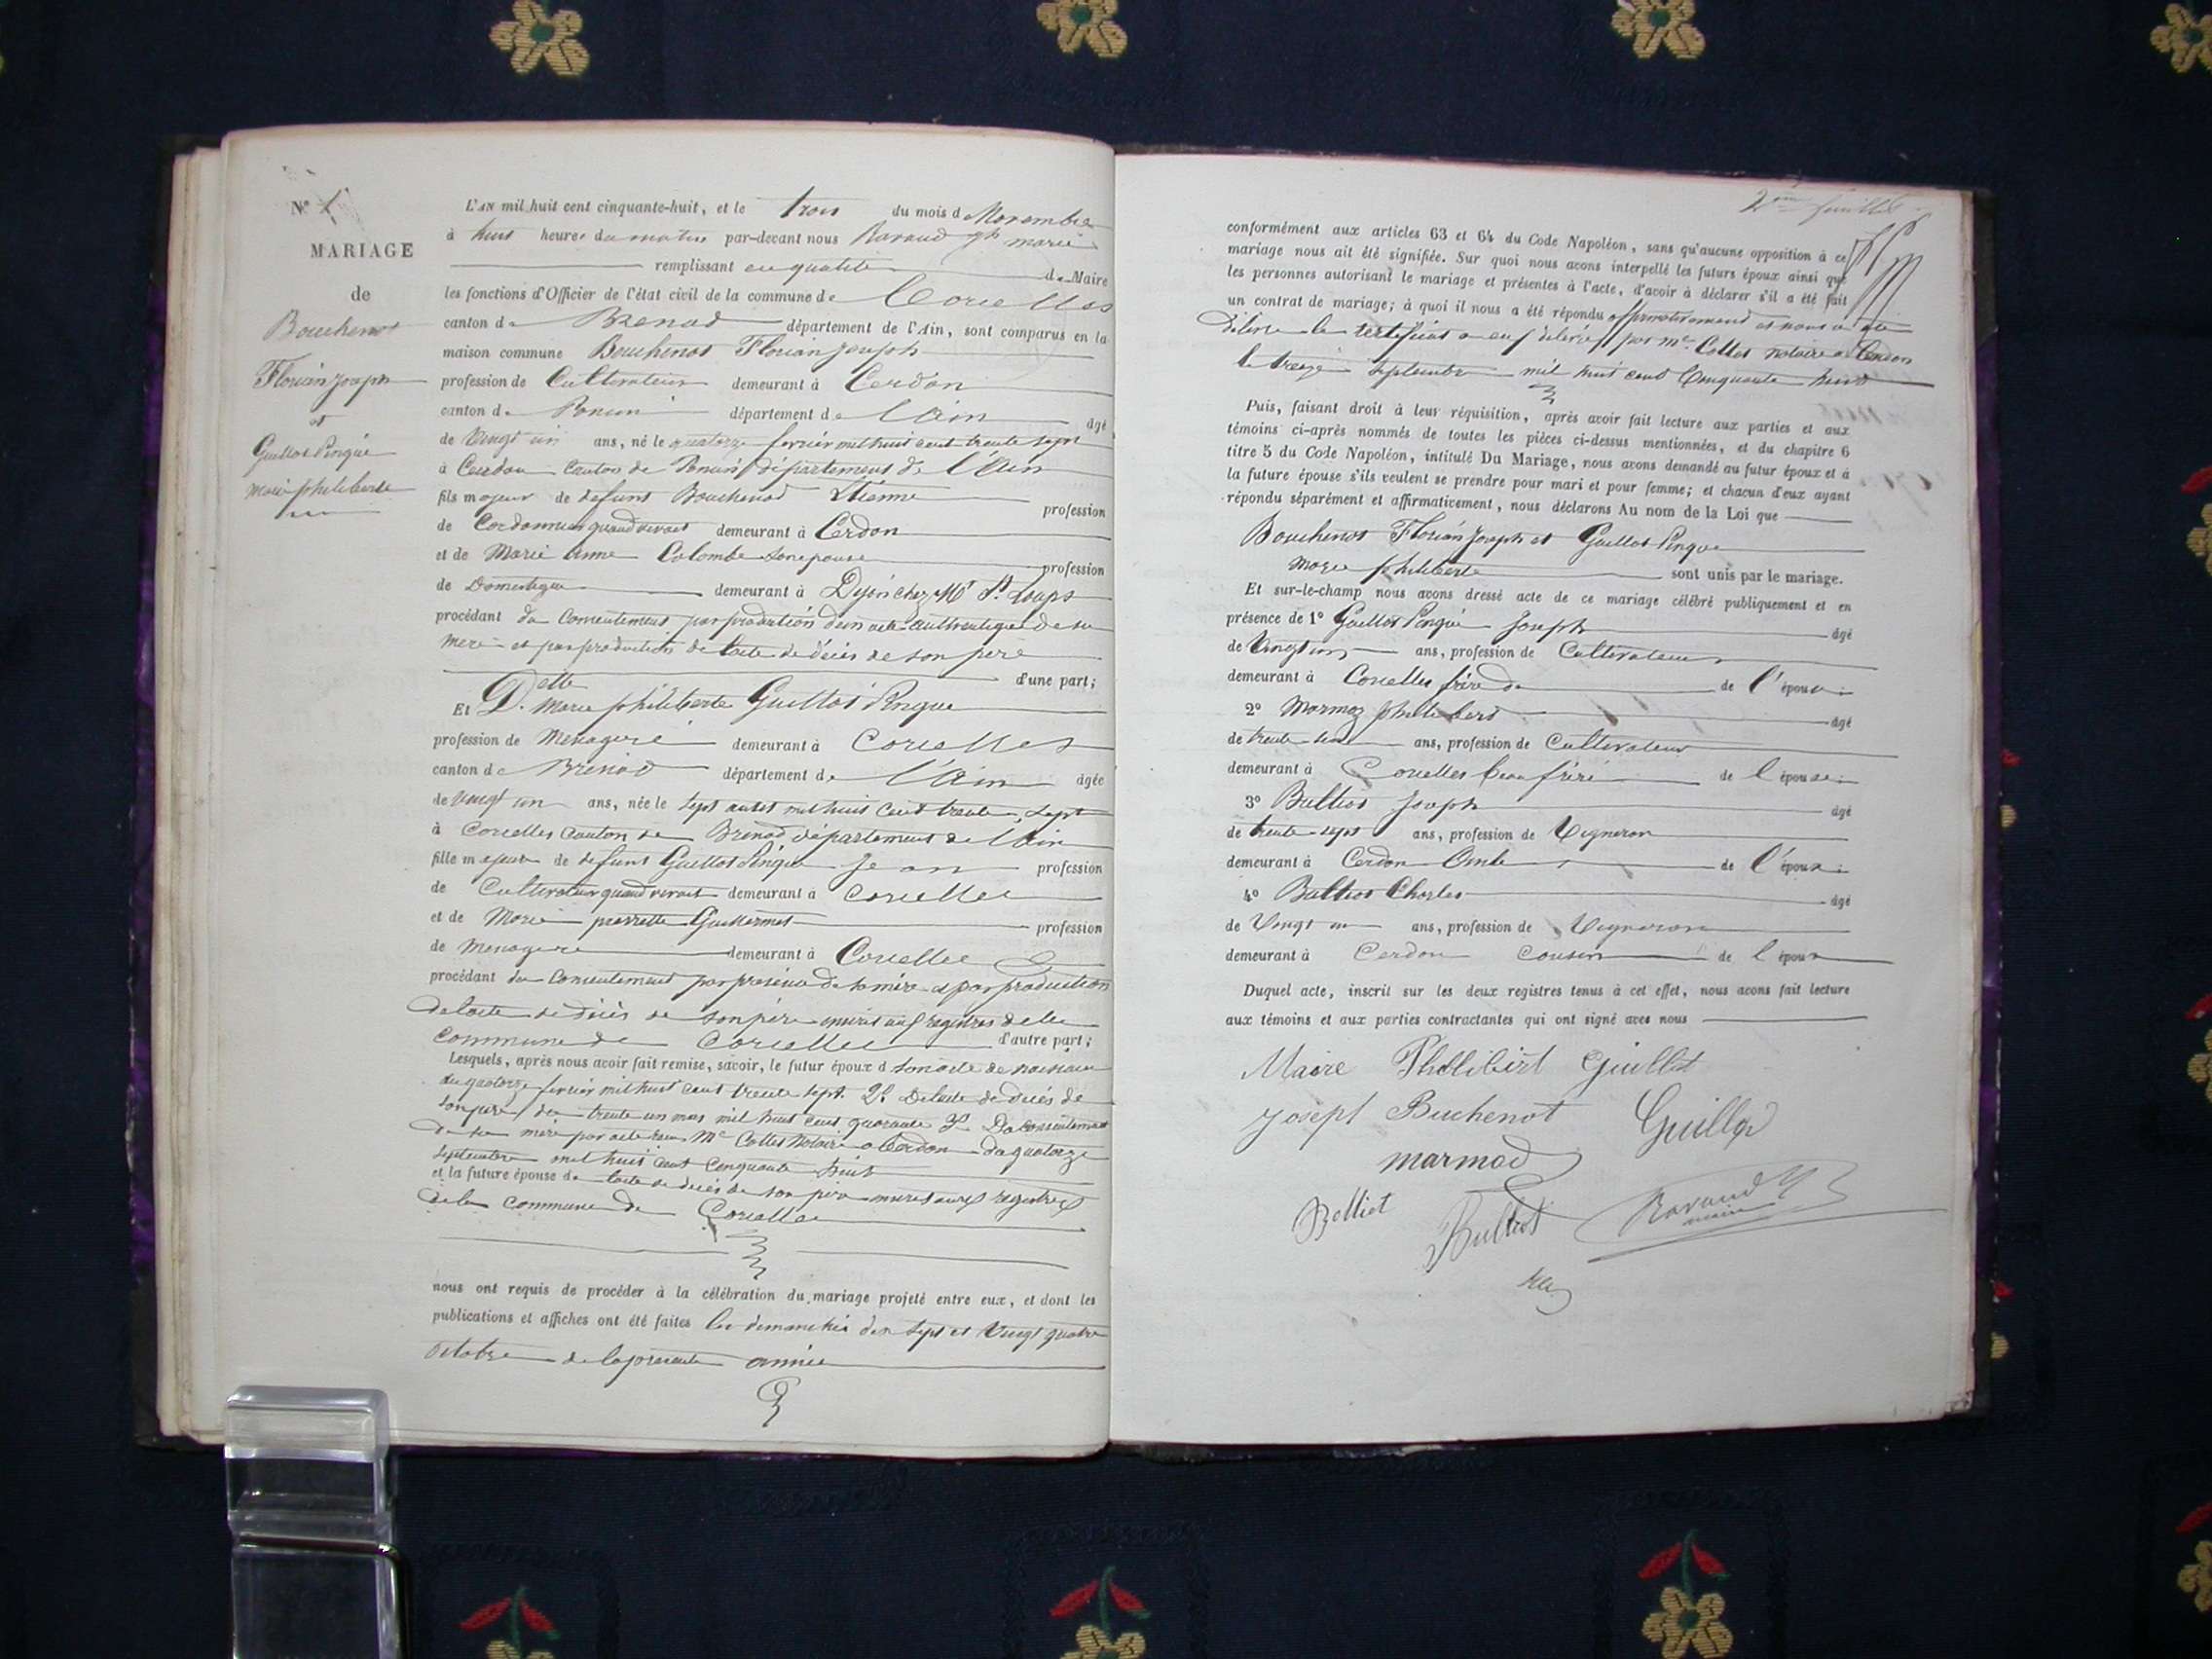 N° 1
MARIAGE
de
Bouchenot
Florian Joseph
et
Guillot Pingue
Marie philiberte
L'AN mil huit cent cinquante-huit, et le trois du mois d Novembre
à huit heures du matin par-devant nous Ravaud marie
remplissant en qualité de Maire
les fonctions d'Officier de l'état civil de la commune de Corcelles
canton de Brenod département de l'Ain, sont comparus en la
maison commune Bouchenot Florian Joseph
profession de Cultivateur demeurant à Cerdon
canton de Poncin département de l'Ain âgé
de Vingt un ans, né le quatorze fevrier mil huit cent trente sept
à Cerdon Canton de Poncin département de l'Ain
fils majeur de defunt Bouchenod Etienne profession
de Cordonnier quand vivait demeurant à Cerdon
et de Marie Anne Colombe son epouse profession
de Domestique demeurant à Dijon chez Mr St. Loups
procédant du Consentement par production d'un acte authentique de sa
mere et par production de l'acte de décès de son père
d'une part;
Et Delle Marie philiberte Guillot Pingue
profession de Menagère demeurant à Corcelles
canton de Brenod département de l'Ain âgée
de vingt un ans, née le sept aout mil huit cent trente sept
à Corcelles Canton de Brenod département de l'Ain
fille majeure de defunt Guillot Pingue Jean profession
de Cultivateur quand vivait demeurant à Corcelles
et de Marie pierrette Guillermet profession
de Menagere demeurant à Corcelles
procédant du Consentement par presence de sa mère et par production
de l'acte de décès de son père inscrit aux registres de la
Commune de Corcelles d'autre part;
Lesquels, après nous avoir fait remise, savoir, le futur époux d son acte de naissance
du quatorze fevrier mil huit cent trente sept. 2° De l'acte de décès de
son père du trente un mil huit cent quarante 3° Du consentement
de sa mère par acte Me Collet Notaire a Cerdon du quatorze
septembre mil huit cent cinquante huit
et la future épouse de l'acte de décès de son père inscrit aux registres
de la commune de Corcelles
nous ont requis de procéder à la célébration du mariage projeté entre eux, et dont les
publications et affiches ont été faites les dimanches dix sept et Vingt quatre
Octobre de la presente année
2me feuillet
conformément aux articles 63 et 64 du Code Napoléon, sans qu'aucune opposition à ce
mariage nous ait été signifiée. Sur quoi nous avons interpellé les futurs époux ainsi que
les personnes autorisant le mariage et présentes à l'acte, d'avoir à déclarer s'il a été fait
un contrat de mariage; à quoi il nous a été répondu affirmativement et nous a été
délivré le certificat a eux délivré par Me Collet notaire a Cerdon
le treize septembre mil huit cent Cinquante huit
Puis, faisant droit à leur réquisition, après avoir fait lecture aux parties et aux
témoins ci-après nommés de toutes les pièces ci-dessus mentionnées, et du chapitre 6
titre 5 du Code Napoléon, intitulé Du Mariage, nous avons demandé au futur époux et à
la future épouse s'ils veulent se prendre pour mari et pour femme; et chacun d'eux ayant
répondu séparément et affirmativement, nous déclarons Au nom de la Loi que
Bouchenot Florian Joseph et Guillot Pingue
Marie philiberte sont unis par le mariage.
Et sur-le-champ nous avons dressé acte de ce mariage célébré publiquement et en
présence de 1° Guillot Pingue Joseph âgé
de Vingt ans, profession de Cultivateur
demeurant à Corcelles frère de de l'épouse
2° Marmoz philibert âgé
de trente ans, profession de Cultivateur
demeurant à Corcelles beau frère de l'épouse
3° Balliot Joseph âgé
de trente sept ans, profession de Vigneron
demeurant à Cerdon Oncle de l'époux
4° Balliot Charles âgé
de Vingt un ans, profession de Vigneron
demeurant à Cerdon Cousin de l'époux
Duquel acte, inscrit sur les deux registres tenus à cet effet, nous avons fait lecture
aux témoins et aux parties contractantes qui ont signé avec nous
Maire Philibert Guillot
Joseph Buchenot Guillot
marmod
Belliet Bulliot Ravaud
maire